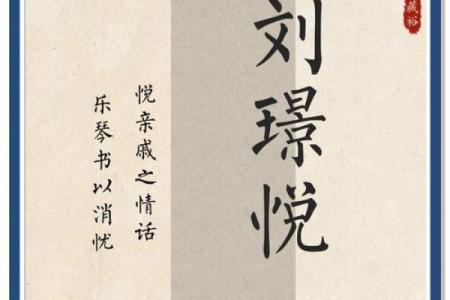 藏裕
刘璟悦
悦亲戚之情话
乐琴书以消忧